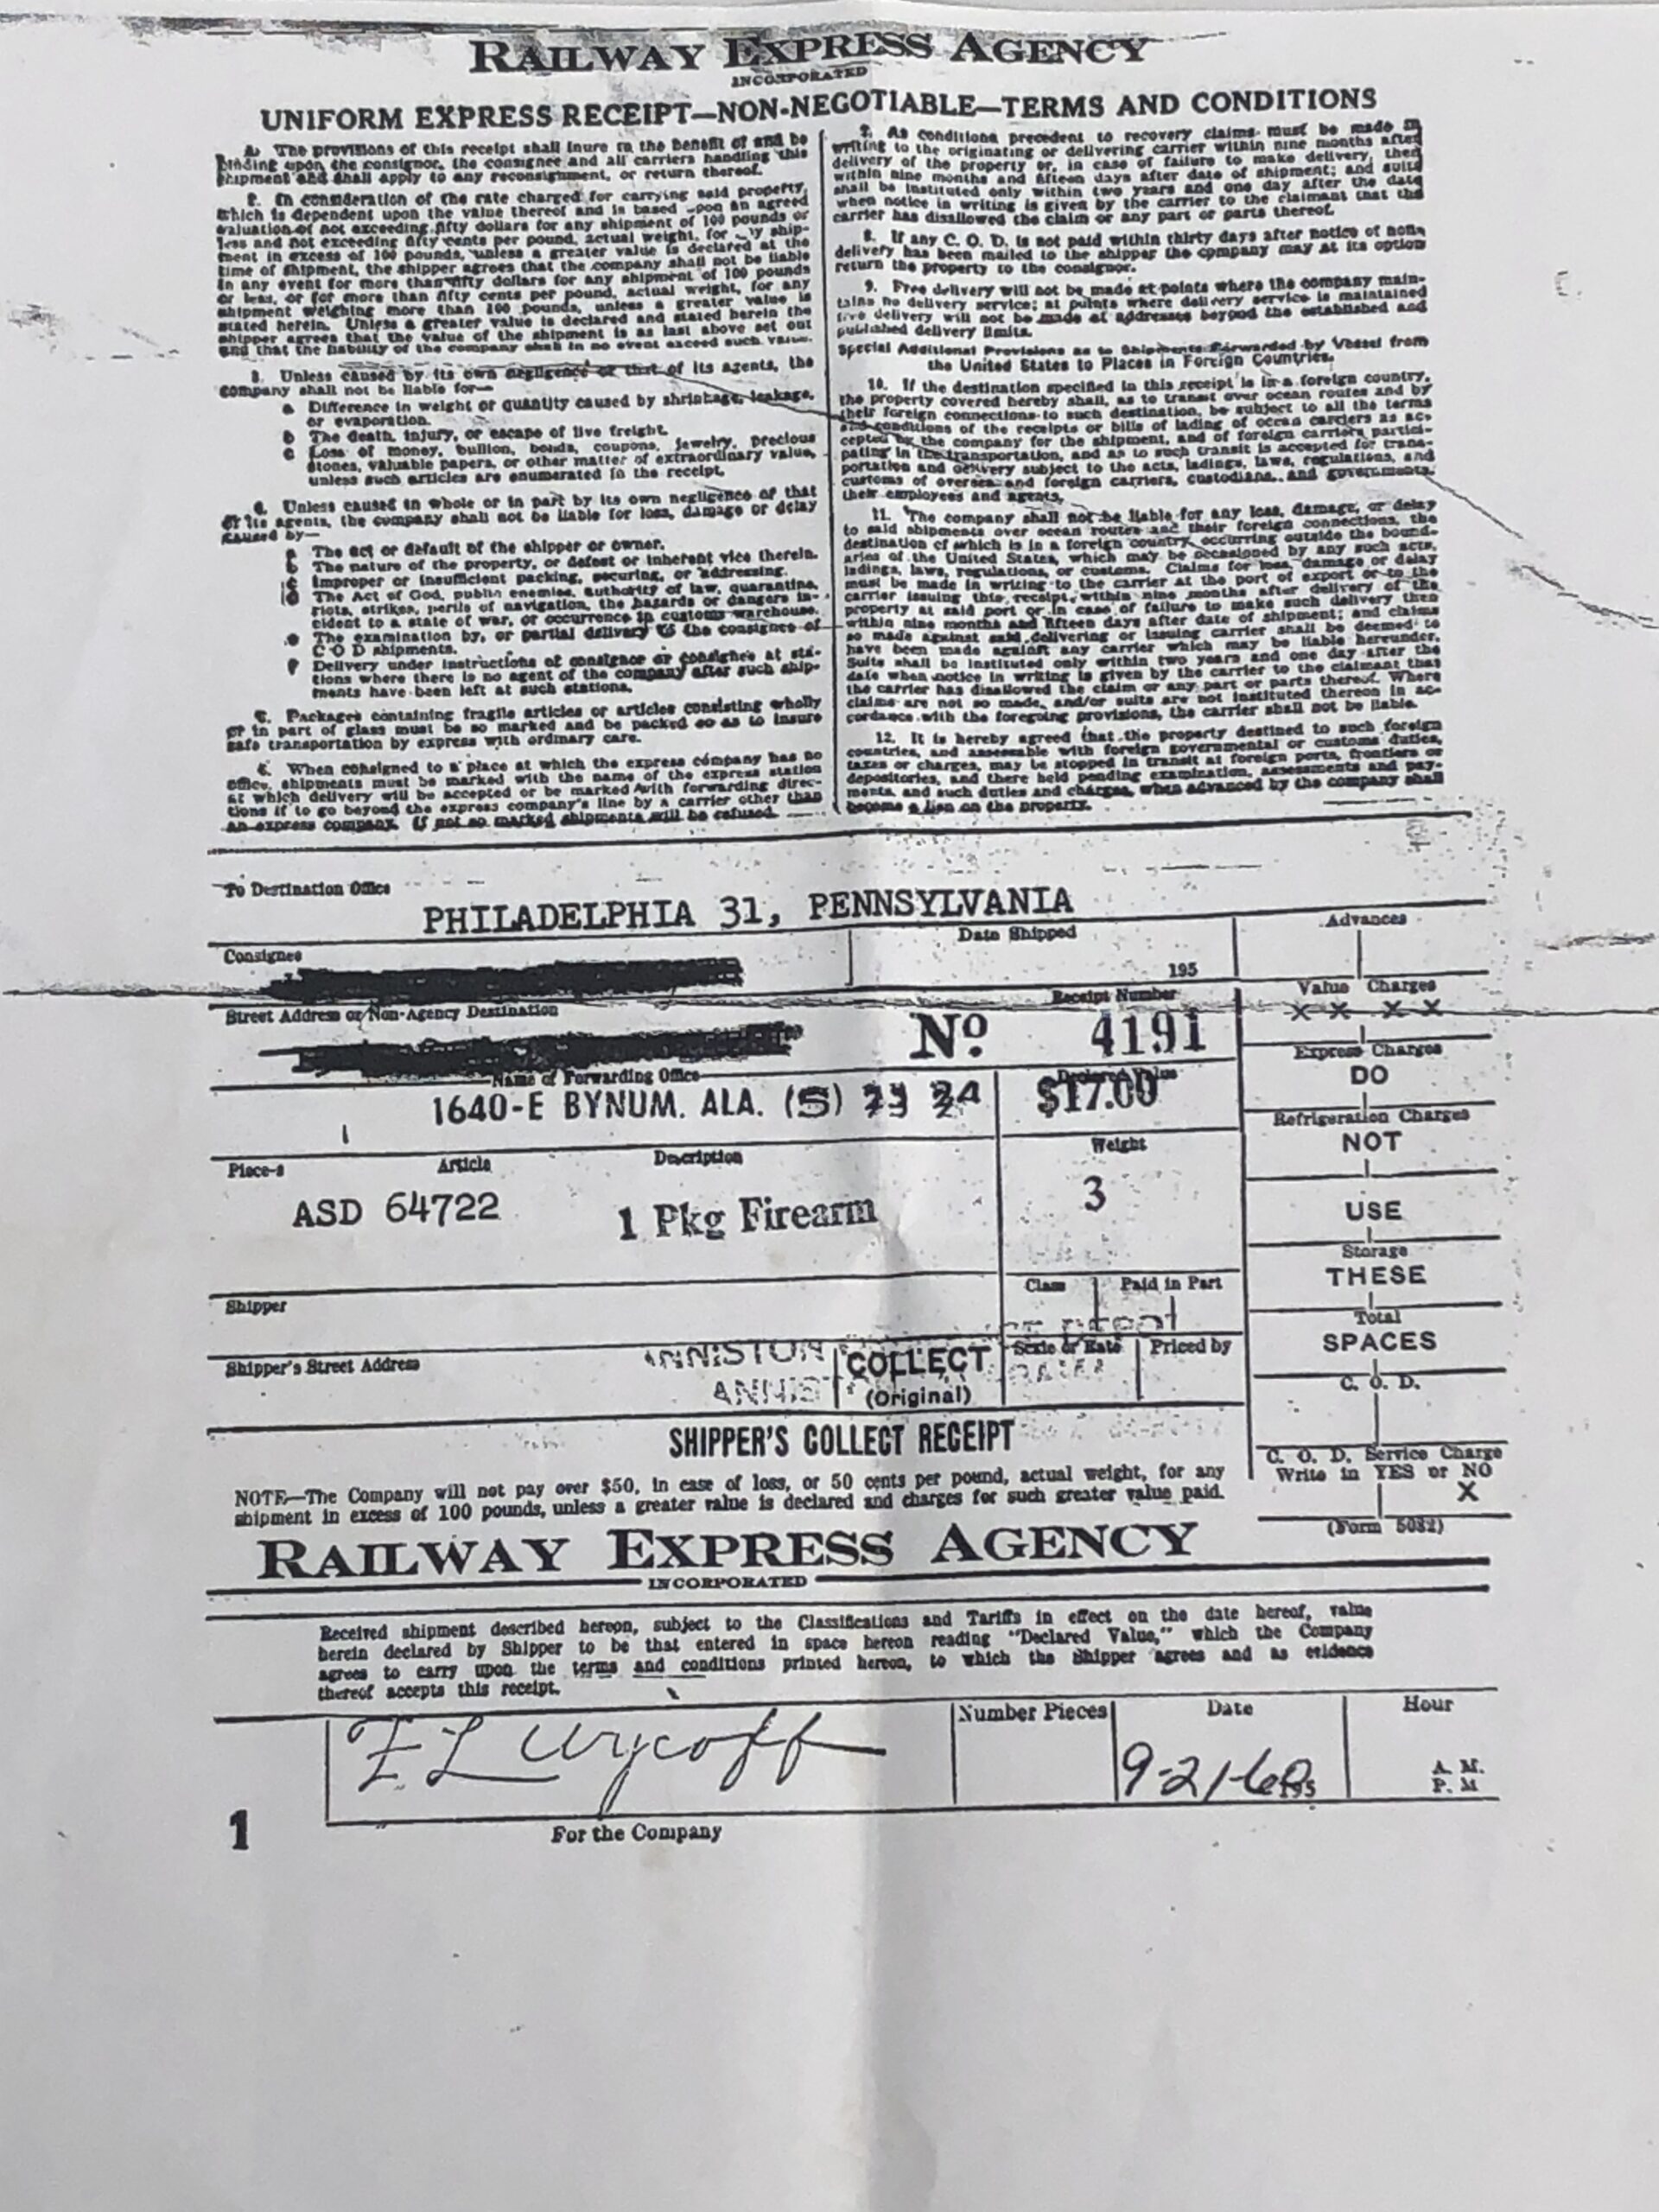 RAILWAY EXPRESS AGENCY
INCORPORATED
UNIFORM EXPRESS RECEIPT—NON-NEGOTIABLE—TERMS AND CONDITIONS
The provisions of this receipt shall inure to the benefit of and be
binding upon the consignor, the consignee and all carriers handling this
shipment and shall apply to any reconsignment, or return thereof.
2. In consideration of the rate charged for carrying said property,
which is dependent upon the value thereof and is based upon an agreed
valuation of not exceeding fifty dollars for any shipment of 100 pounds or
less and not exceeding fifty cents per pound, actual weight, for any ship-
ment in excess of 100 pounds, unless a greater value is declared at the
time of shipment, the shipper agrees that the company shall not be liable
in any event for more than fifty dollars for any shipment of 100 pounds
or less, or for more than fifty cents per pound, actual weight, for any
shipment weighing more than 100 pounds, unless a greater value is
stated herein. Unless a greater value is declared and stated herein the
shipper agrees that the value of the shipment is as last above set out
and that the liability of the company shall in no event exceed such value.
3. Unless caused by its own negligence or that of its agents, the
company shall not be liable for—
a Difference in weight or quantity caused by shrinkage, leakage,
or evaporation.
b The death, injury, or escape of live freight.
c Loss of money, bullion, bonds, coupons, jewelry, precious
stones, valuable papers, or other matter of extraordinary value,
unless such articles are enumerated in the receipt.
4. Unless caused in whole or in part by its own negligence or that
of its agents, the company shall not be liable for loss, damage or delay
caused by—
a The act or default of the shipper or owner.
b The nature of the property, or defect or inherent vice therein.
c Improper or insufficient packing, securing, or addressing.
d The Act of God, public enemies, authority of law, quarantine,
riots, strikes, perils of navigation, the hazards or dangers in-
cident to a state of war, or occurrence in customs warehouse.
e The examination by, or partial delivery to the consignee of
C O D shipments.
f Delivery under instructions of consignor or consignee at sta-
tions where there is no agent of the company after such ship-
ments have been left at such stations.
5. Packages containing fragile articles or articles consisting wholly
or in part of glass must be so marked and be packed so as to insure
safe transportation by express with ordinary care.
6. When consigned to a place at which the express company has no
office, shipments must be marked with the name of the express station
at which delivery will be accepted or be marked with forwarding direc-
tions if to go beyond the express company's line by a carrier other than
an express company. If not so marked shipments will be refused.
7. As conditions precedent to recovery claims must be made in
writing to the originating or delivering carrier within nine months after
delivery of the property or, in case of failure to make delivery, then
within nine months and fifteen days after date of shipment; and suits
shall be instituted only within two years and one day after the date
when notice in writing is given by the carrier to the claimant that the
carrier has disallowed the claim or any part or parts thereof.
8. If any C. O. D. is not paid within thirty days after notice of non-
delivery has been mailed to the shipper the company may at its option
return the property to the consignor.
9. Free delivery will not be made at points where the company main-
tains no delivery service; at points where delivery service is maintained
free delivery will not be made at addresses beyond the established and
published delivery limits.
Special Additional Provisions as to Shipments Forwarded by Vessel from
the United States to Places in Foreign Countries.
10. If the destination specified in this receipt is in a foreign country,
the property covered hereby shall, as to transit over ocean routes and by
their foreign connections to such destination, be subject to all the terms
and conditions of the receipts or bills of lading of ocean carriers as ac-
cepted by the company for the shipment, and of foreign carriers partici-
pating in the transportation, and as to such transit is accepted for trans-
portation and delivery subject to the acts, ladings, laws, regulations, and
customs of oversea and foreign carriers, custodians, and governments,
their employees and agents.
11. The company shall not be liable for any loss, damage, or delay
to said shipments over ocean routes and their foreign connections, the
destination of which is in a foreign country, occurring outside the bound-
aries of the United States, which may be occasioned by any such acts,
ladings, laws, regulations, or customs. Claims for loss, damage or delay
must be made in writing to the carrier at the port of export or to the
carrier issuing this receipt, within nine months after delivery of the
property at said port or in case of failure to make such delivery then
within nine months and fifteen days after date of shipment; and claims
so made against said delivering or issuing carrier shall be deemed to
have been made against any carrier which may be liable hereunder.
Suits shall be instituted only within two years and one day after the
date when notice in writing is given by the carrier to the claimant that
the carrier has disallowed the claim or any part or parts thereof. Where
claims are not so made, and/or suits are not instituted thereon in ac-
cordance with the foregoing provisions, the carrier shall not be liable.
12. It is hereby agreed that the property destined to such foreign
countries, and assessable with foreign governmental or customs duties,
taxes or charges, may be stopped in transit at foreign ports, frontiers or
depositories, and there held pending examination, assessments and pay-
ments, and such duties and charges, when advanced by the company shall
become a lien on the property.
To Destination Office
PHILADELPHIA 31, PENNSYLVANIA
Advances
Consignee
Date Shipped
195
Value Charges
X X X X
Street Address or Non-Agency Destination
Receipt Number
No. 4191
Express Charges
DO
Name of Forwarding Office
Declared Value
1640-E BYNUM. ALA. (S)
$17.00
Refrigeration Charges
NOT
Piece-s Article Description
Weight
ASD 64722
1 Pkg Firearm
3
USE
Storage
THESE
Shipper
Class
Paid in Part
Total
SPACES
Shipper's Street Address
COLLECT
(Original)
Scale or Rate
Priced by
C. O. D.
SHIPPER'S COLLECT RECEIPT
C. O. D. Service Charge
Write in YES or NO
X
(Form 5032)
NOTE—The Company will not pay over $50, in case of loss, or 50 cents per pound, actual weight, for any
shipment in excess of 100 pounds, unless a greater value is declared and charges for such greater value paid.
RAILWAY EXPRESS AGENCY
INCORPORATED
Received shipment described hereon, subject to the Classifications and Tariffs in effect on the date hereof, value
herein declared by Shipper to be that entered in space hereon reading "Declared Value," which the Company
agrees to carry upon the terms and conditions printed hereon, to which the Shipper agrees and as evidence
thereof accepts this receipt.
Number Pieces
Date
Hour
9-21-60
195
A. M.
P. M
1
For the Company